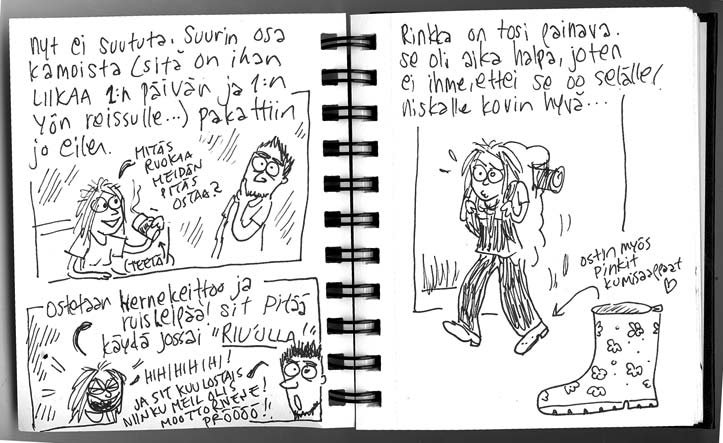 nyt ei suututa. Suurin osa
kamoista (sitä on ihan
LIIKAA 1:n päivän ja 1:n
yön reissulle...) pakattiin
jo eilen.
MITÄS
RUOKAA
MEIDÄN
PITÄS
OSTAA?
(TEETÄ)
Ostetaan Hernekeittoo ja
ruisleipää! sit pitää
käydä jossai "RIU'ULLA!"
HIHIHIHIHI!
JA SIT KUULOSTAIS
NIINKU MEIL OLIS
MOOTTORIVENE!
PRÖÖÖÖ!!
Rinkka on tosi painava.
se oli aika halpa, joten
ei ihme, ettei se oo selälle/
niskalle kovin hyvä...
ostin myös
pinkit
kumisaappaat